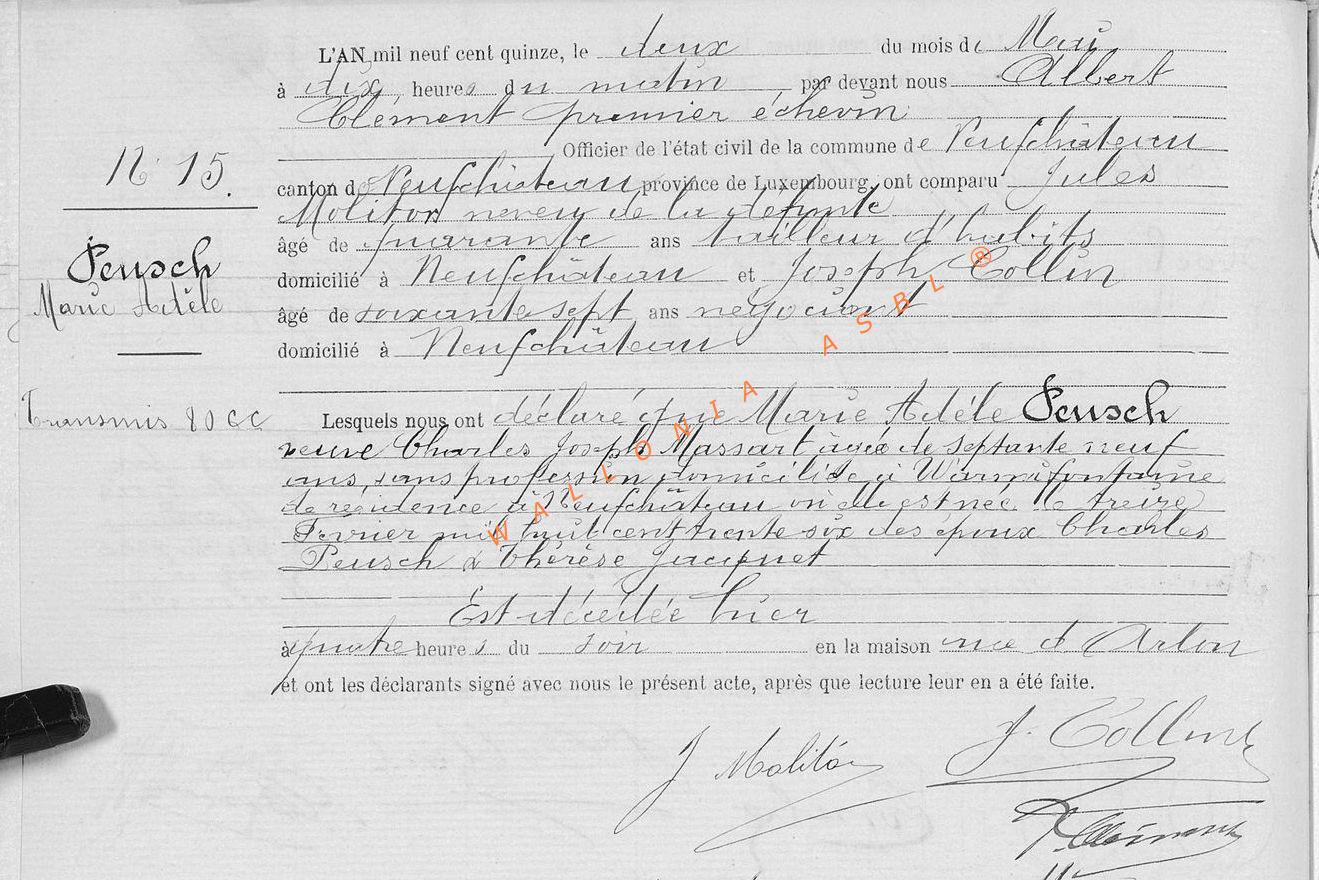 L'AN mil neuf cent quinze, le deux du mois de Mai
à dix, heures du matin, par devant nous Albert
Clément premier échevin
Officier de l'état civil de la commune de Neufchâteau
N° 15.
canton de Neufchâteau, province de Luxembourg, ont comparu Jules
Molitor neveu de la défunte
âgé de quarante ans tailleur d'habits
Peusch
Marie Adèle
domicilié à Neufchâteau et Joseph Collin
âgé de soixante sept ans négociant
domicilié à Neufchâteau
Transmis 80 CC
Lesquels nous ont déclaré que Marie Adèle Peusch
veuve Charles Joseph Massart âgée de septante neuf
ans, sans profession domiciliée à Warmifontaine
de résidence à Neufchâteau où elle est née le treize
Février mil huit cent trente six des époux Charles
Peusch & Thérèse Jacquet
Est décédée hier
à quatre heures du soir en la maison rue d'Arlon
et ont les déclarants signé avec nous le présent acte, après que lecture leur en a été faite.
J Molitor
J. Collin
Clément
WALLONIA ASBL ®